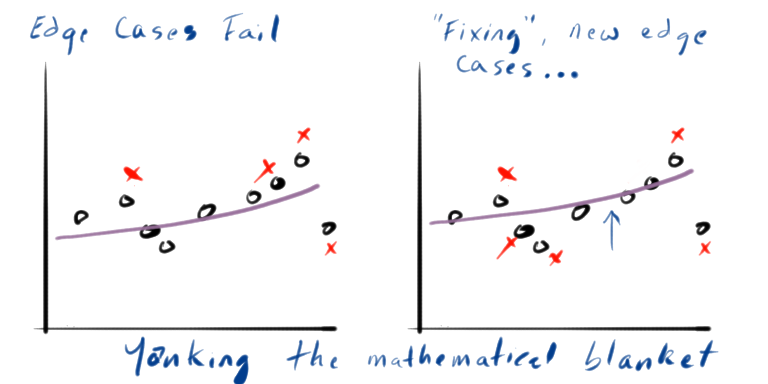 Edge Cases Fail
"Fixing", new edge
Cases...
Yonking the mathematical blanket